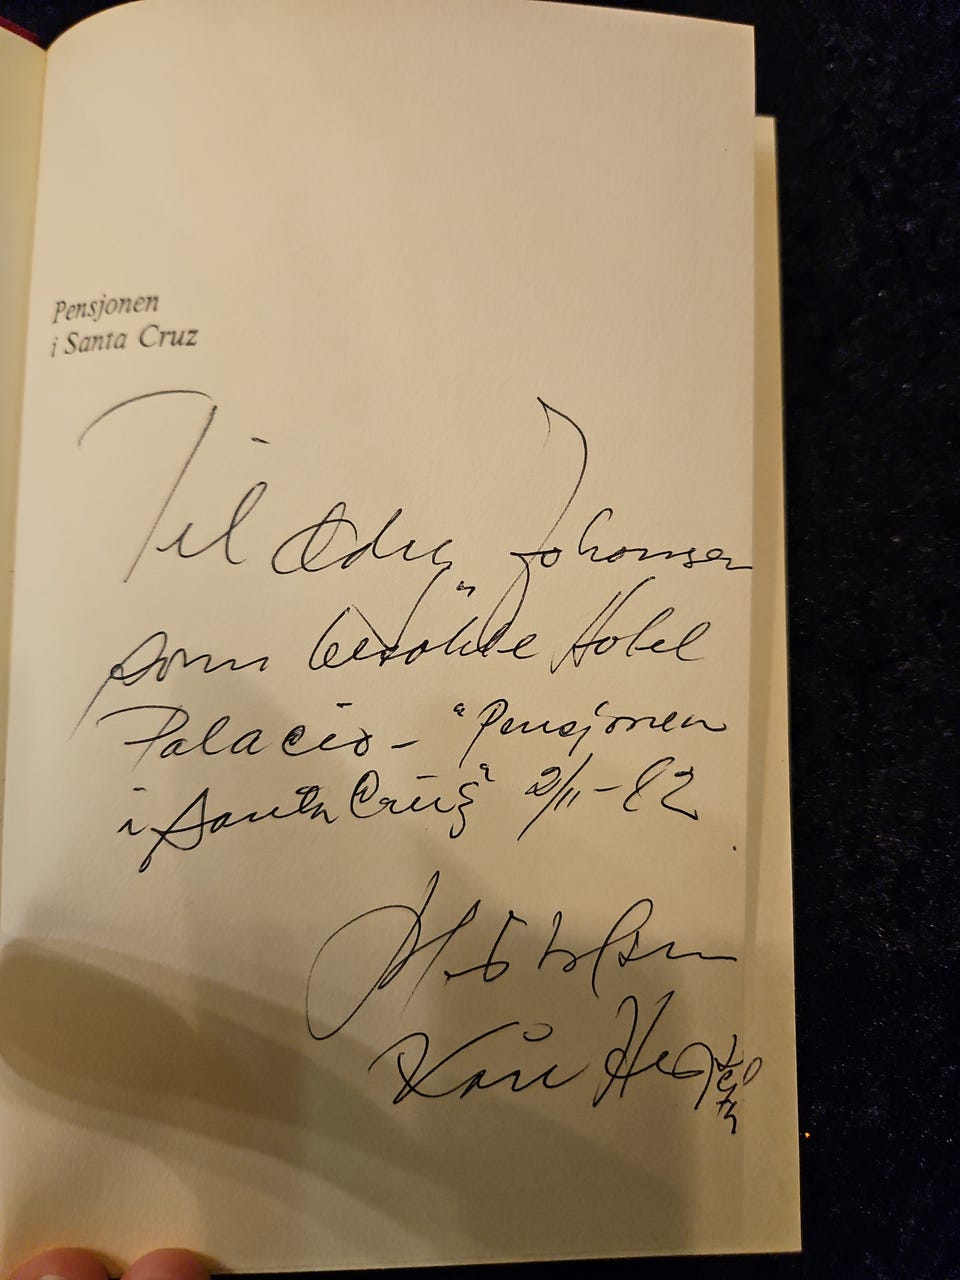 Pensjonen
i Santa Cruz
Til Johansen
som besøkte Hotel
Palacio - "Pensjonen
i Santa Cruz" 2/11-82
Hilsen
Kåre